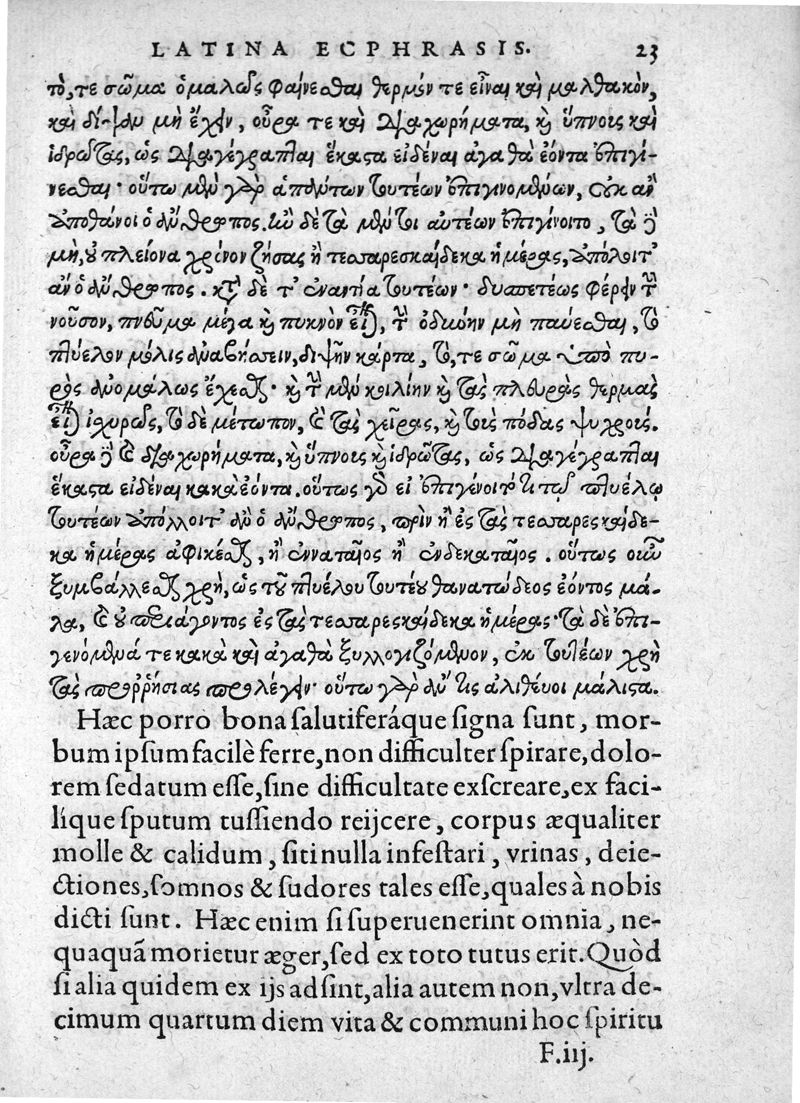 LATINA ECPHRASIS. 23
τὸ,τε σῶμα ὁμαλῶς φαίνεσθαι θερμόν τε εἶναι καὶ μαλθακὸν,
καὶ δίψαν μὴ ἔχειν, οὖρα τε καὶ διαχωρήματα, καὶ ὕπνοις καὶ
ἱδρῶτας, ὡς διαγέγραπται ἕκαστα εἰδέναι ἀγαθὰ ἐόντα ἐπιγί-
νεσθαι· οὕτω μὲν γὰρ ἁπάντων τουτέων ἐπιγινομένων, οὐκ ἂν
ἀποθάνοι ὁ ἄνθρωπος. ἢν δὲ τὰ μέν τοι αὐτέων ἐπιγίνοιτο, τὰ δὲ
μὴ, οὐ πλείονα χρόνον ζήσας ἢ τεσσαρεσκαίδεκα ἡμέρας, ἀπόλοιτ'
ἂν ὁ ἄνθρωπος. κατὰ δὲ τ' ἐναντία τουτέων· δυσπετέως φέρειν τὴν
νοῦσον, πνεῦμα μέγα καὶ πυκνὸν εἶναι, τὴν ὀδύνην μὴ παύεσθαι, τὸ
πτύελον μόλις ἀναβήσσειν, διψῆν κάρτα, τό,τε σῶμα ὑπὸ πυ-
ρὸς ἀνομάλως ἔχεσθαι· καὶ τὴν μὲν κοιλίην καὶ τὰς πλευρὰς θερμὰς
εἶναι ἰσχυρῶς, τὸ δὲ μέτωπον, καὶ τὰς χεῖρας, καὶ τοὺς πόδας ψυχροίς.
οὖρα δὲ καὶ διαχωρήματα, καὶ ὕπνοις καὶ ἱδρῶτας, ὡς διαγέγραπται
ἕκαστα εἰδέναι κακὰ ἐόντα. οὕτως γὰρ εἰ ἐπιγένοιτό τι τῷ πτυέλῳ
τουτέων ἀπόλλοιτ' ἂν ὁ ἄνθρωπος, πρὶν ἢ ἐς τὰς τεσσαρεσκαίδε-
κα ἡμέρας ἀφικέσθαι, ἢ ἐνναταῖος ἢ ἑνδεκαταῖος. οὕτως οὖν
ξυμβάλλεσθαι χρὴ, ὡς τοῦ πτυέλου τουτέου θανατώδεος ἐόντος μά-
λα, καὶ οὐ περιάγοντος ἐς τὰς τεσσαρεσκαίδεκα ἡμέρας· τὰ δὲ ἐπι-
γενόμενά τε κακὰ καὶ ἀγαθὰ ξυλλογιζόμενον, ἐκ τουτέων χρὴ
τὰς προῤῥήσιας προλέγειν· οὕτω γὰρ ἄν τις ἀληθεύοι μάλιστα.
Hæc porro bona salutiferáque signa sunt, mor-
bum ipsum facilè ferre, non difficulter spirare, dolo-
rem sedatum esse, sine difficultate exscreare, ex faci-
líque sputum tussiendo reijcere, corpus æqualiter
molle & calidum, siti nulla infestari, vrinas, deie-
ctiones, somnos & sudores tales esse, quales à nobis
dicti sunt. Hæc enim si superuenerint omnia, ne-
quaquã morietur æger, sed ex toto tutus erit. Quòd
si alia quidem ex ijs adsint, alia autem non, vltra de-
cimum quartum diem vita & communi hoc spiritu
F.iij.